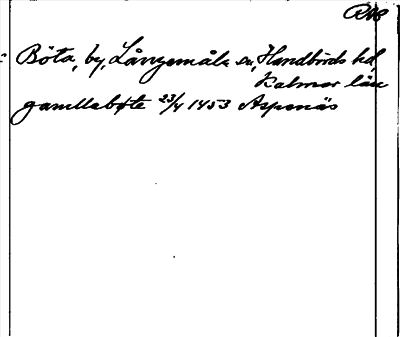 RAp
Böta, by, Långemåla sn, Handbörds hd,
Kalmar län
gamllabøte 23/4 1453 Aspenäs